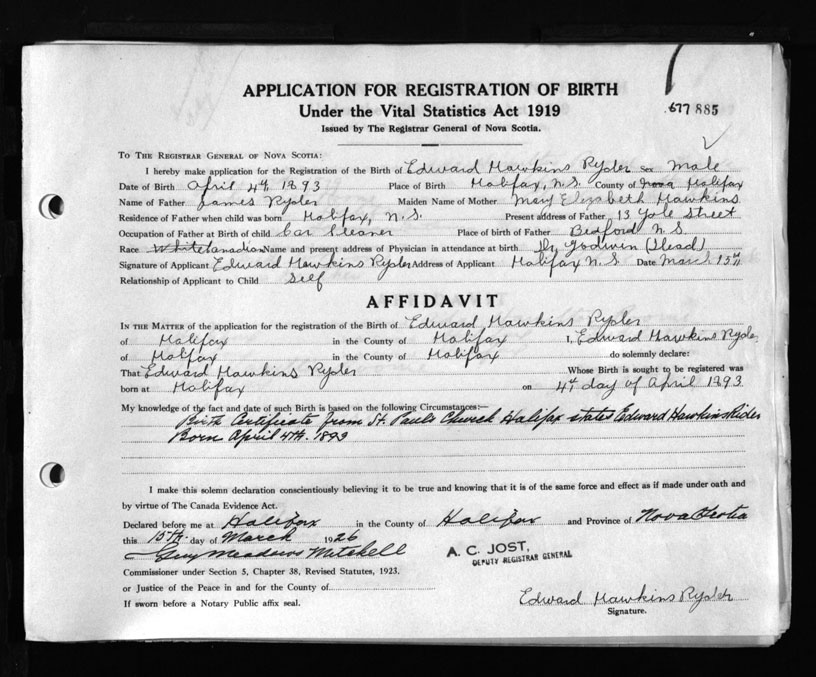 APPLICATION FOR REGISTRATION OF BIRTH
Under the Vital Statistics Act 1919
677 885
Issued by The Registrar General of Nova Scotia.
TO THE REGISTRAR GENERAL OF NOVA SCOTIA:
I hereby make application for the Registration of the Birth of Edward Hawkins Ryder Male
Date of Birth April 4th 1893 Place of Birth Halifax, N.S. County of Halifax
Name of Father James Ryder Maiden Name of Mother Mary Elizabeth Hawkins
Residence of Father when child was born Halifax, N.S. Present address of Father 13 Yale Street
Occupation of Father at Birth of child Car Cleaner Place of birth of Father Bedford N.S.
Race White Canadian Name and present address of Physician in attendance at birth Dr Godwin (Dead)
Signature of Applicant Edward Hawkins Ryder Address of Applicant Halifax N.S. Date March 15th
Relationship of Applicant to Child Self
AFFIDAVIT
IN THE MATTER of the application for the registration of the Birth of Edward Hawkins Ryder
of Halifax in the County of Halifax I, Edward Hawkins Ryder
of Halifax in the County of Halifax do solemnly declare:
That Edward Hawkins Ryder Whose Birth is sought to be registered was
born at Halifax on 4th day of April 1893
My knowledge of the fact and date of such Birth is based on the following Circumstances:—
Birth Certificate from St. Pauls Church Halifax states Edward Hawkins Rider
Born April 4TH. 1893
I make this solemn declaration conscientiously believing it to be true and knowing that it is of the same force and effect as if made under oath and
by virtue of The Canada Evidence Act.
Declared before me at Halifax in the County of Halifax and Province of Nova Scotia
this 15TH. day of March 1926
Guy Meadows Mitchell
A. C. JOST,
DEPUTY REGISTRAR GENERAL
Commissioner under Section 5, Chapter 38, Revised Statutes, 1923.
or Justice of the Peace in and for the County of
If sworn before a Notary Public affix seal.
Edward Hawkins Ryder
Signature.